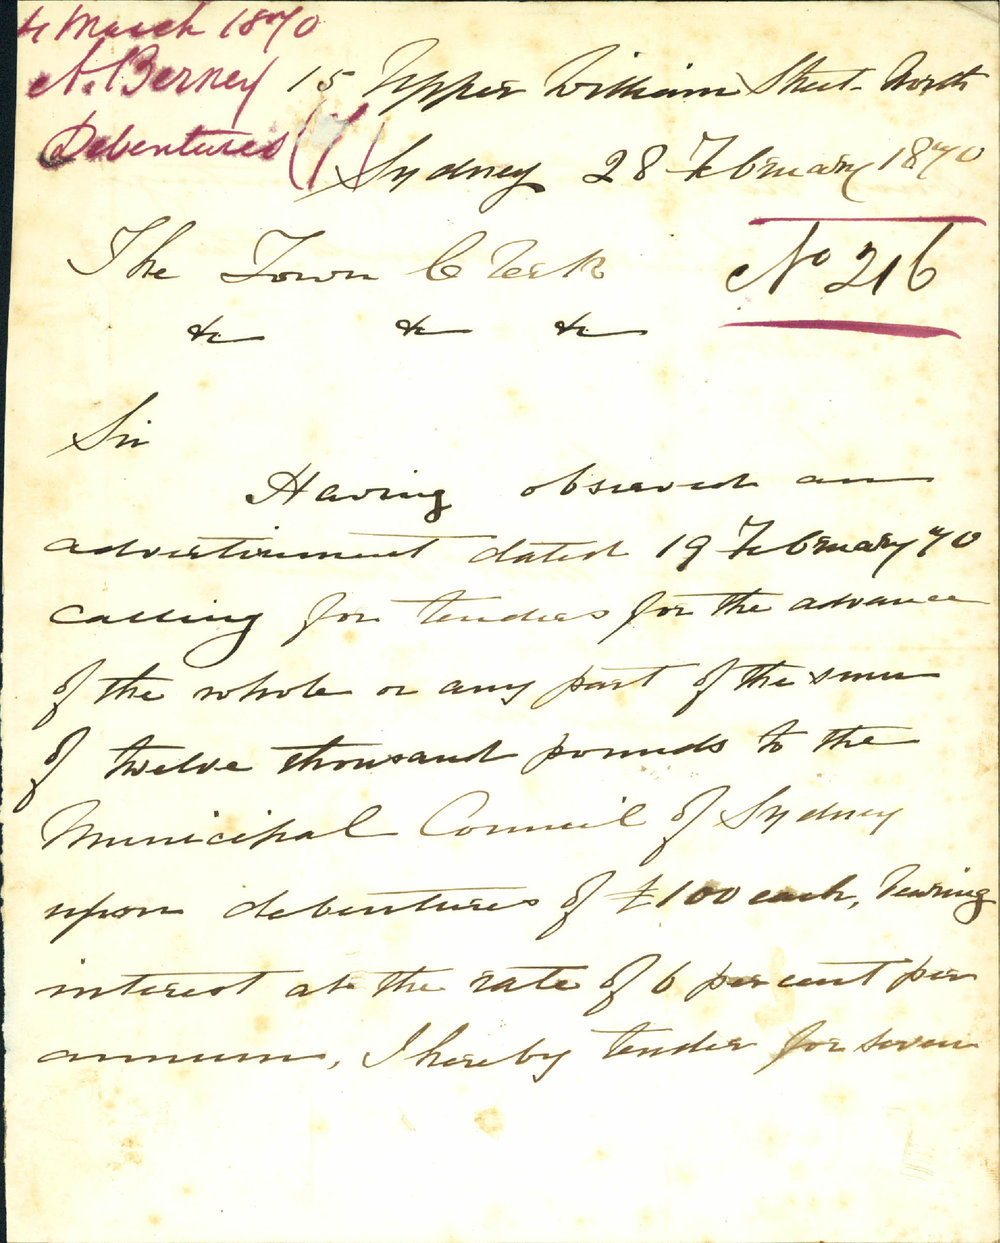 4 March 1870
A. Berney
Debentures (7)
15 Upper William Street North
Sydney 28 February 1870
No 216
The Town Clerk
&c &c &c
Sir
Having observed an
advertisement dated 19 February 70
calling for tenders for the advance
of the whole or any part of the sum
of twelve thousand pounds to the
Municipal Council of Sydney
upon debentures of £100 each, bearing
interest at the rate of 6 per cent per
annum, I hereby tender for seven